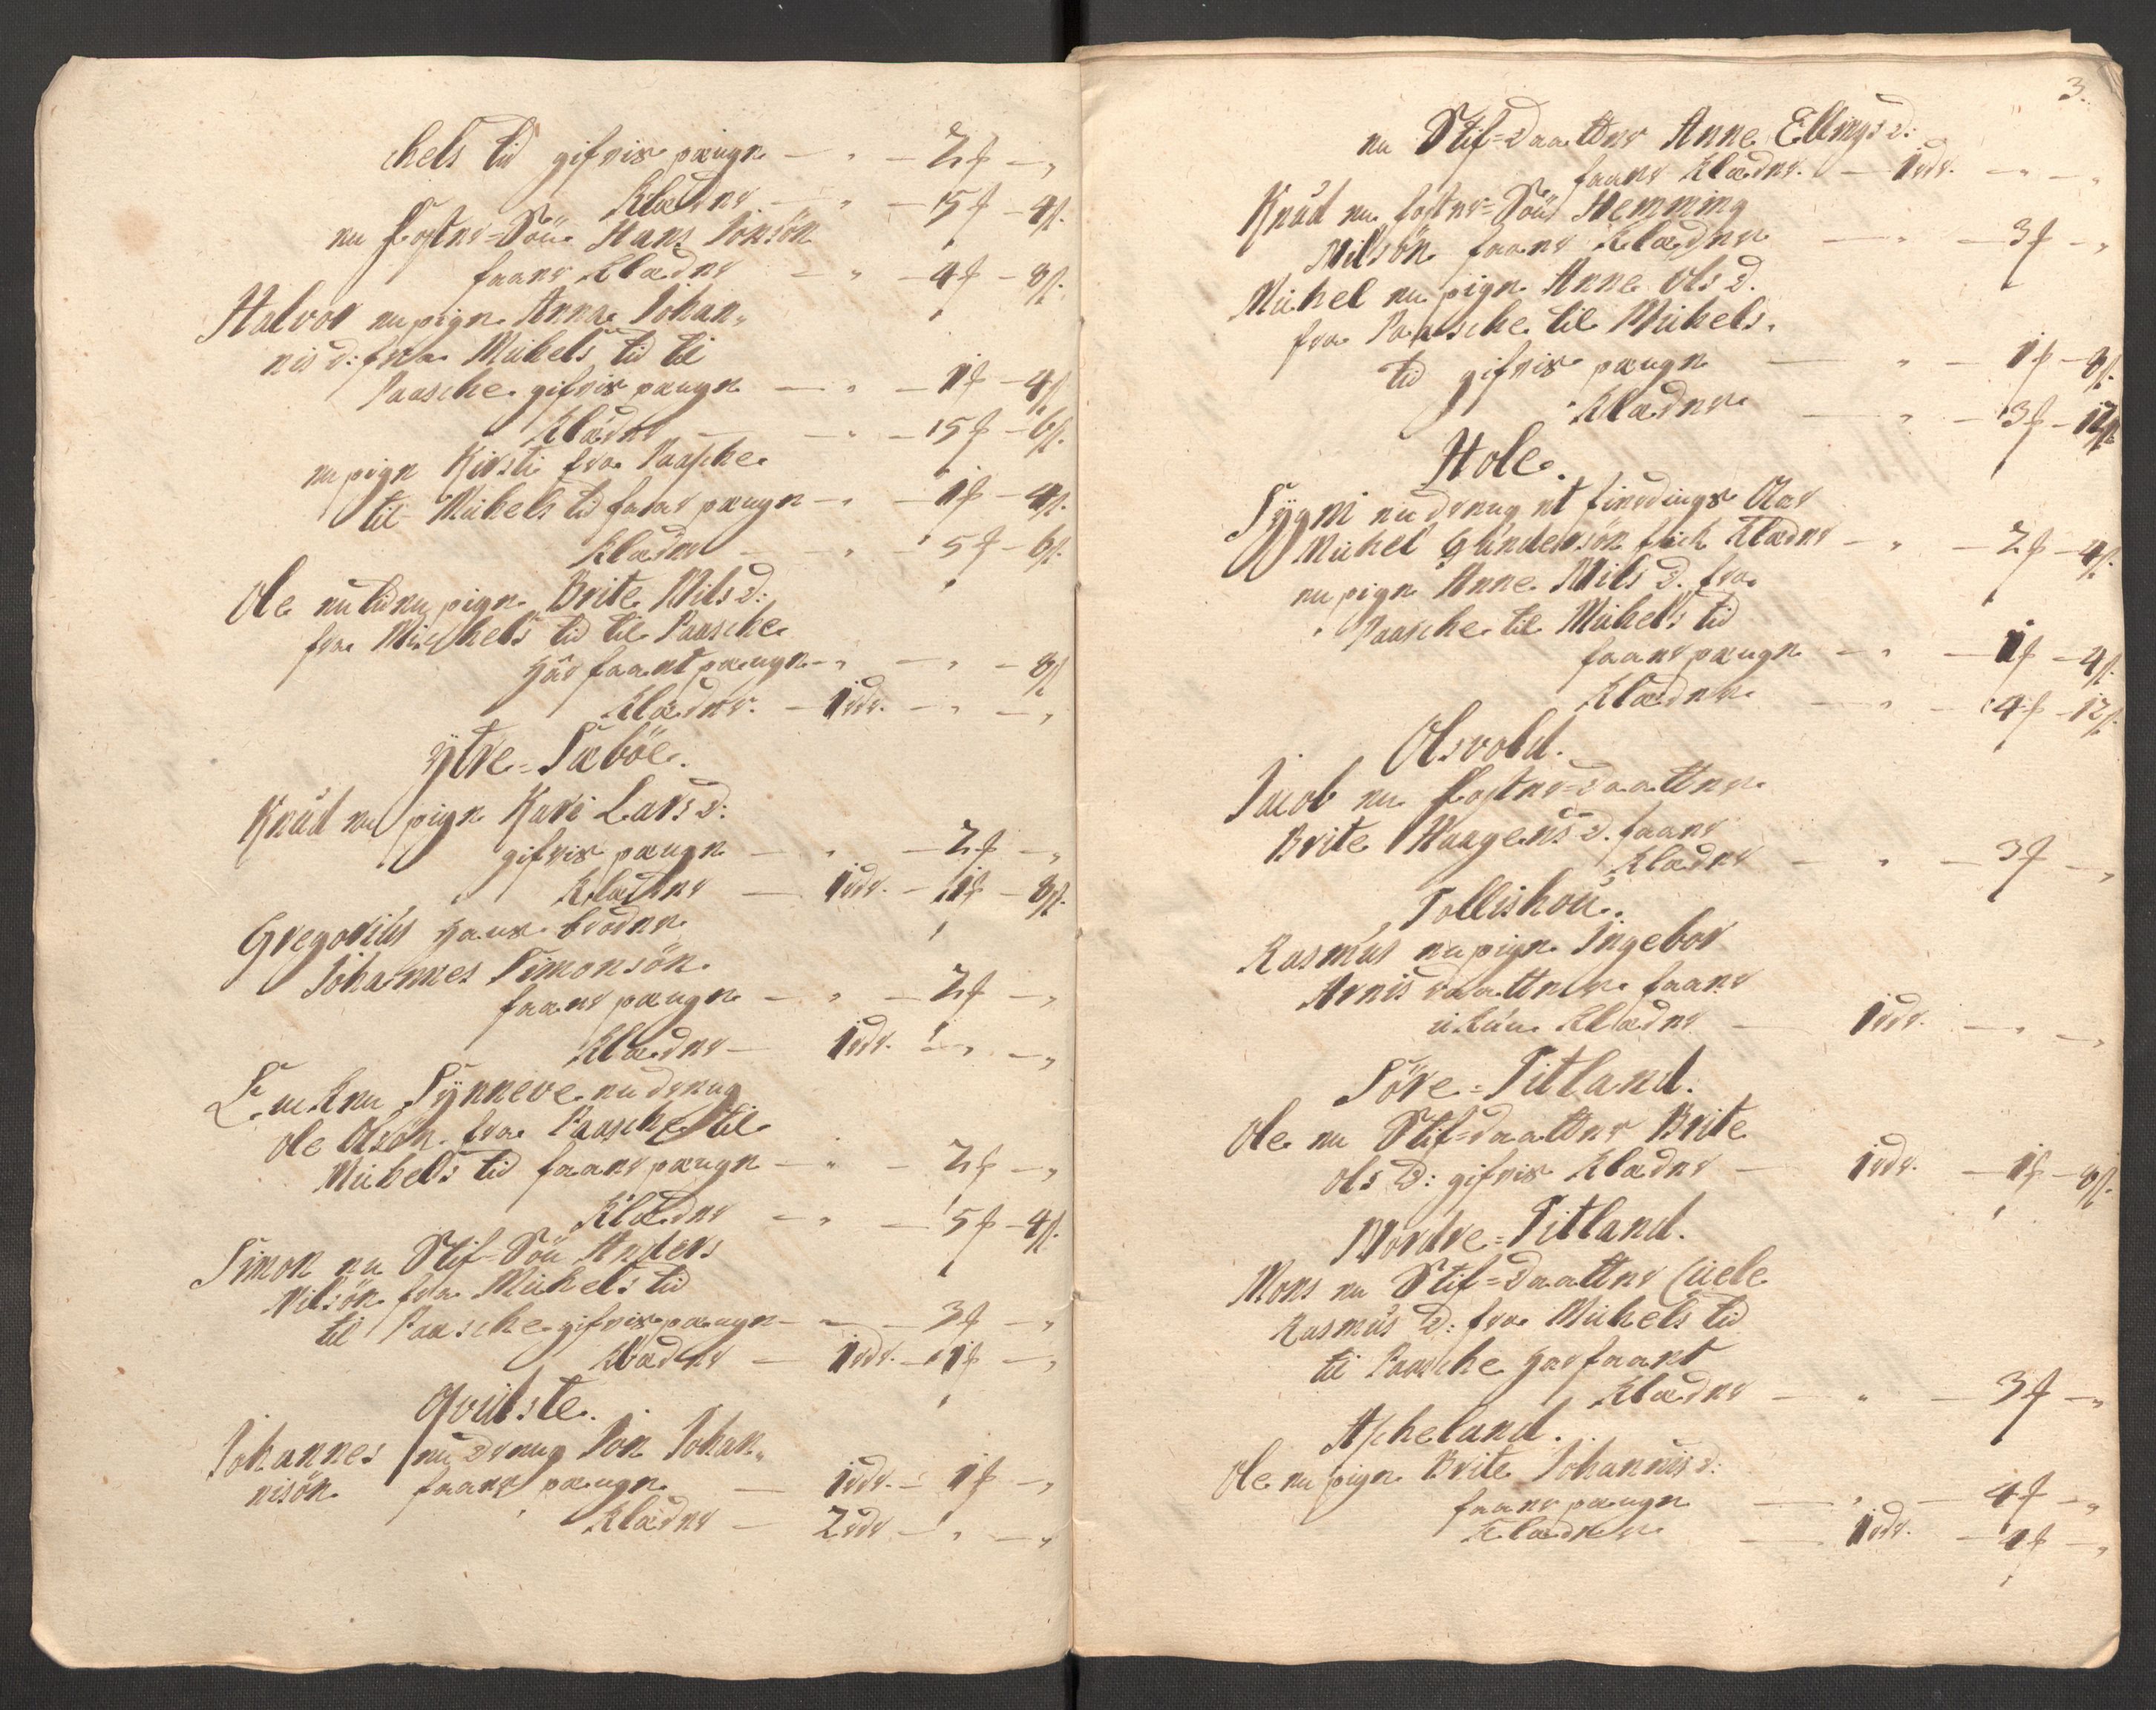 chels tid gifvis pænge — „ — 2 ₰ — „
Klæder — „ — 5 ₰ — 4 ß.
en Foster-Søn Hans Jonsøn
faaer Klæder — „ — 4 ₰ — 8 ß.
Halvor en pige Anna Johan„
nis d: fra Michels tid til
Paasche gifvis pænge — „ — 1 ₰ — 4 ß
Klæder — „ — 5 ₰ — 6 ß.
en pige Kirsti fra Paasche
til Michels tid faaer pænge — „ — 1 ₰ — 4 ß.
Klæder — „ — 5 ₰ — 6 ß.
Ole en liden pige Brite Nils d:
fra Michels tid til Paasche
har faaet pænge — „ — „ — 8 ß
Klæder — 1 rdr. — „ — „
Ytre-Sæbøe.
Knud en pige Kari Lars d:
gifvis pænge — „ — 2 ₰ — „
Klæder — 1 rdr. — 1 ₰ — 8 ß.
Gregorius hans broder
Johannes Simonsøn
faaer pænge — „ — 2 ₰ — „
Klæder — 1 rdr. — „ — „
Enken Synneve en dreng
Ole Olsøn fra Paasche til
Michels tid faaer pænge — „ — 2 ₰ — „
Klæder — „ — 5 ₰ — 4 ß.
Simon en Stif-Søn Anders
Nilsøn fra Michels tid
til Paasche gifvis pænge — „ — 3 ₰ — „
Klæder — 1 rdr. — 1 ₰ — „
Qvilste.
Johannes en dreng Jon Johan„
nisøn faaer pænge — 1 rdr. — 1 ₰ — „
Klæder — 2 rdr — „ — „
3.
en Stif-Daatter Anne Ellings d:
faaer Klæder. — 1 rdr. — „ — „
Knud en foster-Søn Hemming
Nilsøn faaer Klæder — „ — 3 ₰ — „
Michel en pige Anne Ols d.
fra Paasche til Michels
tid gifvis pænge — „ — 1 ₰ — 8 ß.
Klæder — „ — 3 ₰ — 12 ß
Hole.
Sygni en dreng et fierdings Aar
Michel Gundersøn fick Klæder — „ — 2 ₰ — 4 ß.
en pige Anne Nils d. fra
Paasche til Michels tid
faaer pænge — „ — 1 ₰ — 4 ß.
Klæder — „ — 4 ₰ — 12 ß.
Olsvold.
Jacob en Foster-daatter
Brite Haagens d. faaer
Klæder — „ — 3 ₰ — „
Tollishou.
Rasmus en pige Ingebor
Arnis daatter faaer
ickun Klæder — 1 rdr. — „ — „
Søre-Titland.
Ole en Stif-daatter Brite
Ols d: gifvis Klæder — 1 rdr. — 1 ₰ — 8 ß.
Nordre-Titland.
Mons en Stif-daatter Ciele
Rasmus d: fra Michels tid
til Paasche har faaet
Klæder — „ — 3 ₰ — „
Ascheland.
Ole en pige Brite Johannis d:
faaer pænge — „ — 4 ₰ — „
Klæder — 1 rdr. — 4 ₰ — „